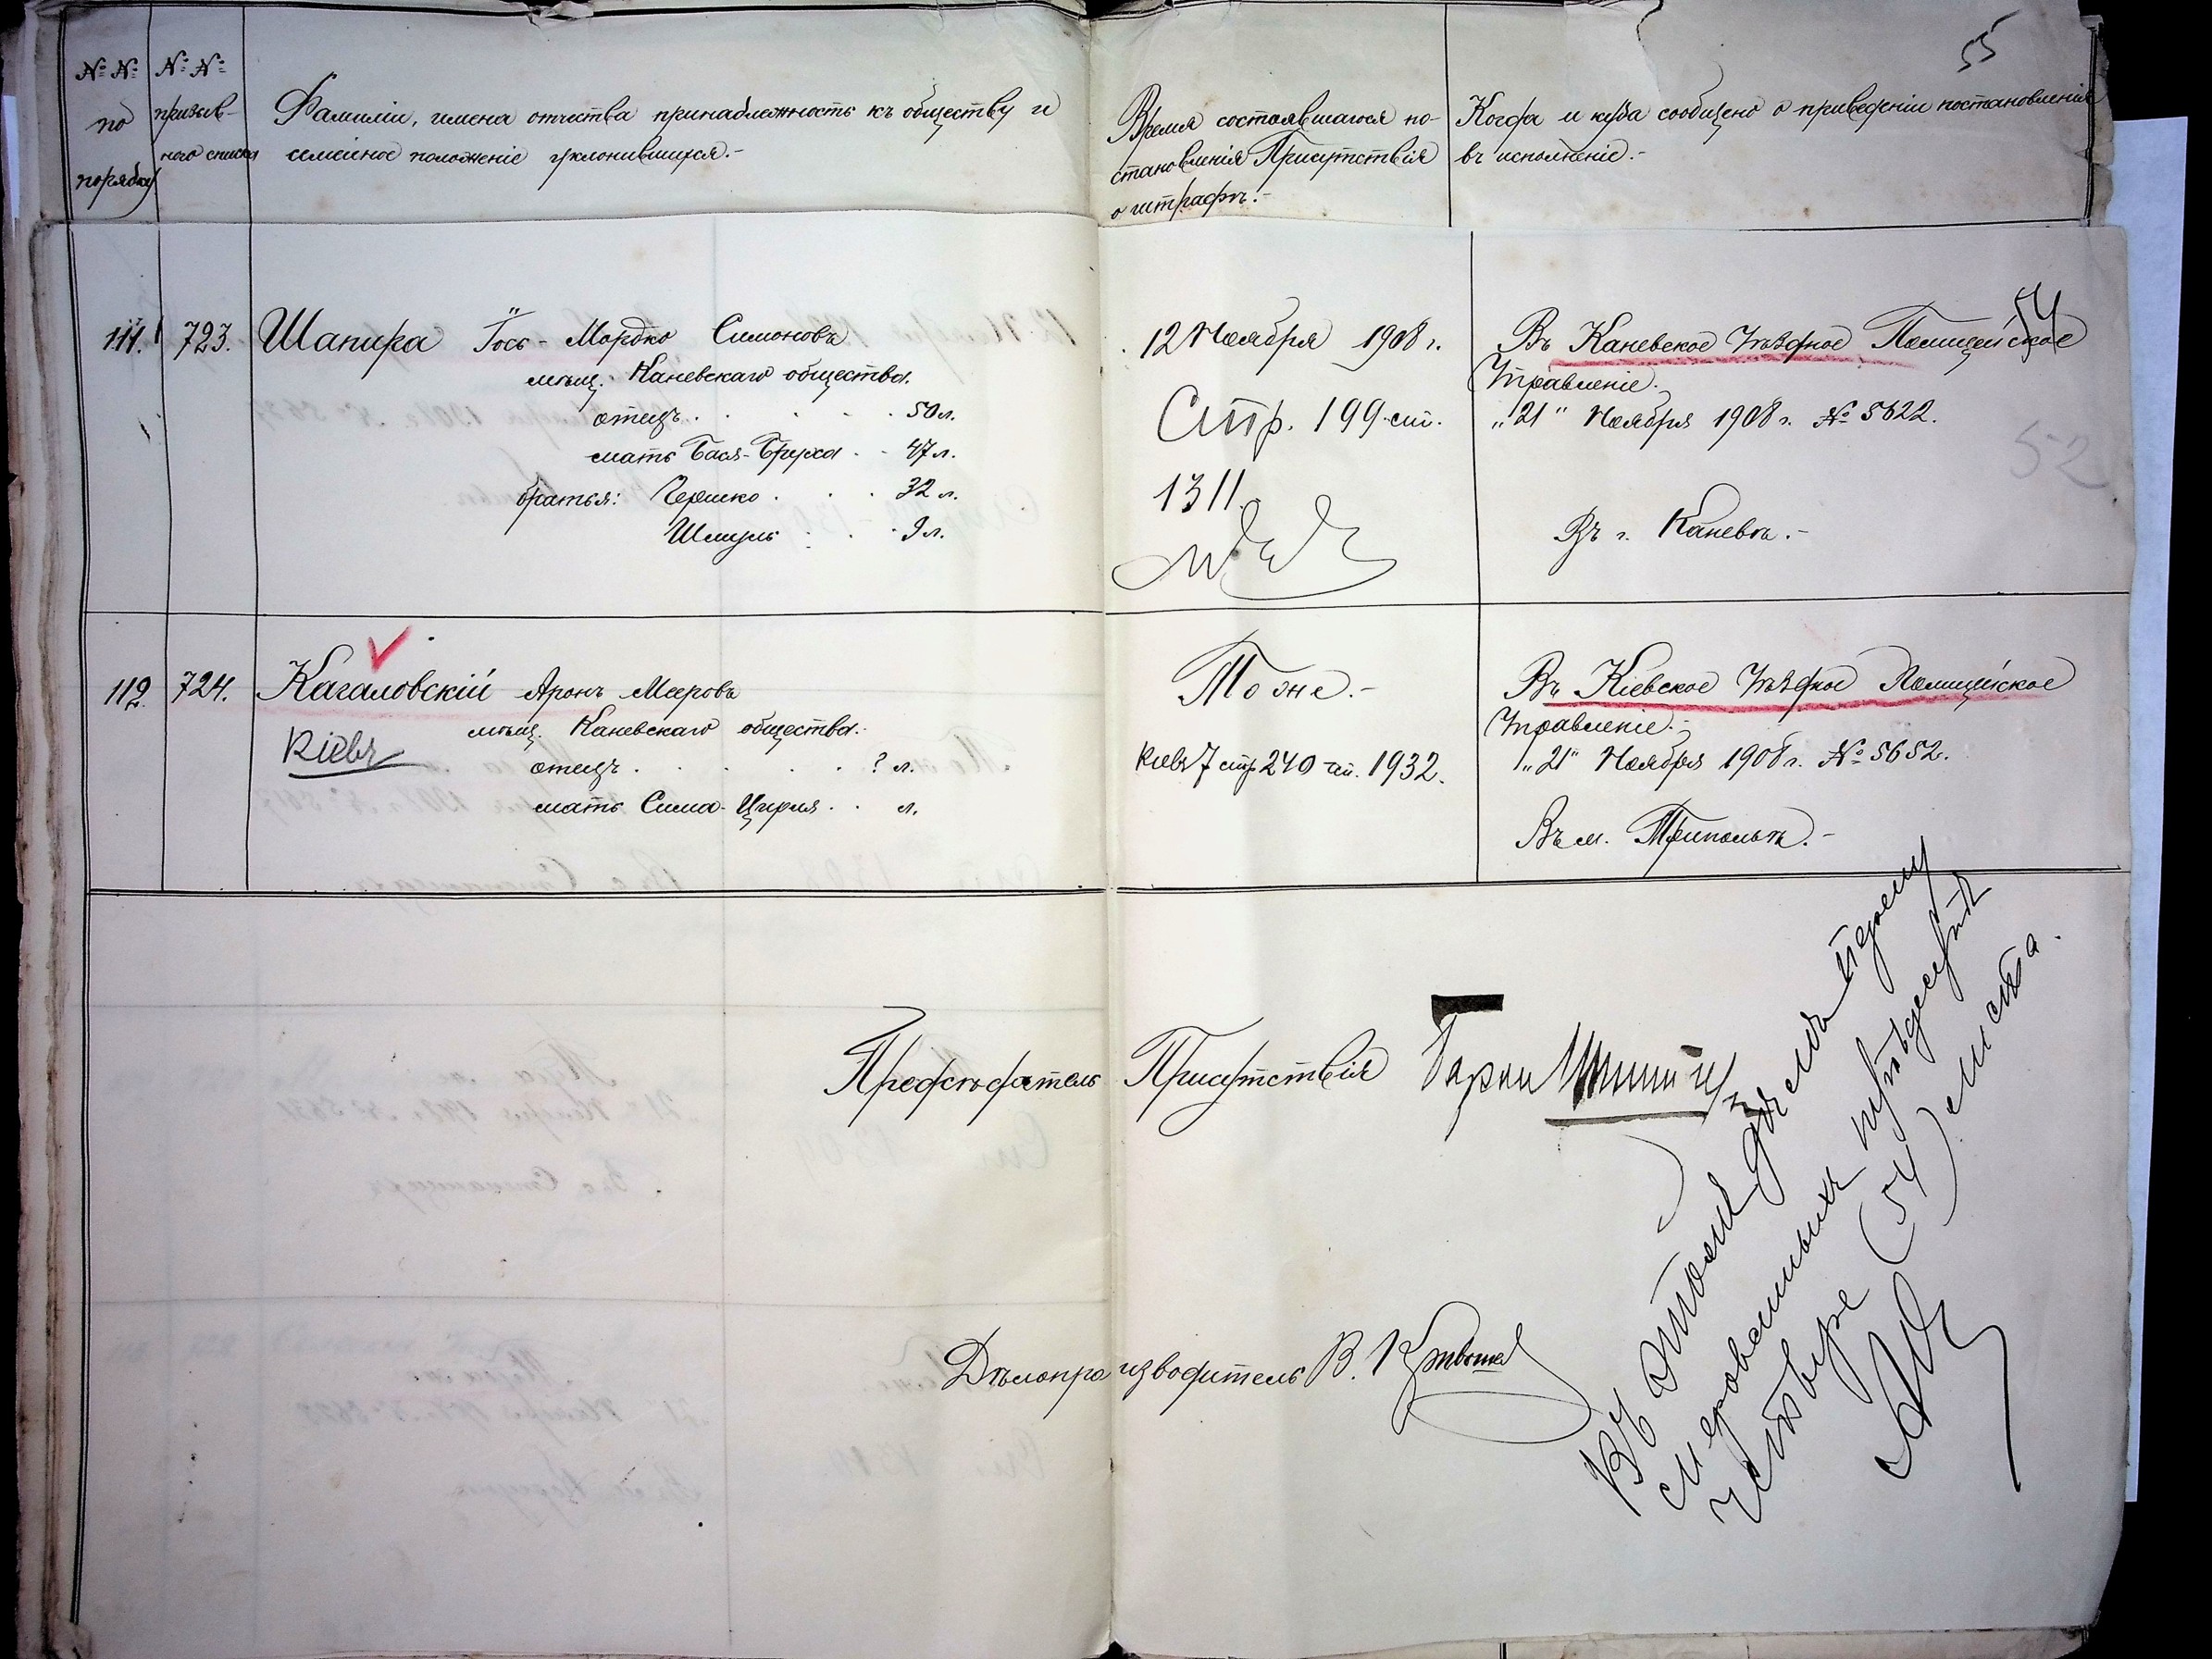 55
№ № по порядку
№ № призыв-
ного списка
Фамиліи, имена отчества принадлежность къ обществу и
семейное положеніе уклонившихся.-
Время состоявшагося по-
становленія Присутствія
о штрафѣ.-
Когда и куда сообщено о приведеніи постановленія
въ исполненіе.-
54
111. 723. Шапира Іось-Мордко Симоновъ
мѣщ. Каневскаго общества.
отецъ . . . . 50 л.
мать Бася-Бруха . . 47 л.
братья: Гершко . . . 32 л.
Шмуль . . . 9 л.
12 Ноября 1908 г.
Стр. 199 ст.
1311.
Въ Каневское Уѣздное Полицейское
Управленіе.
„21“ Ноября 1908 г. № 5622.
52
Въ г. Каневѣ.-
112. 724. Кагаловскій Аронъ Мееровъ
мѣщ. Каневскаго общества.-
Кіевъ
отецъ . . . . . ? л.
мать Сима-Цирля . . л.
Тоже.-
Кіевъ 7 стр 240 ст. 1932.
Въ Кіевское Уѣздное Полицейское
Управленіе.-
„21“ Ноября 1908 г. № 5652.
Въ м. Трипольѣ.-
Предсѣдатель Присутствія Барон
Дѣлопроизводитель В.
Въ этомъ дѣлѣ
пятьдесятъ
четыре (54) листа.